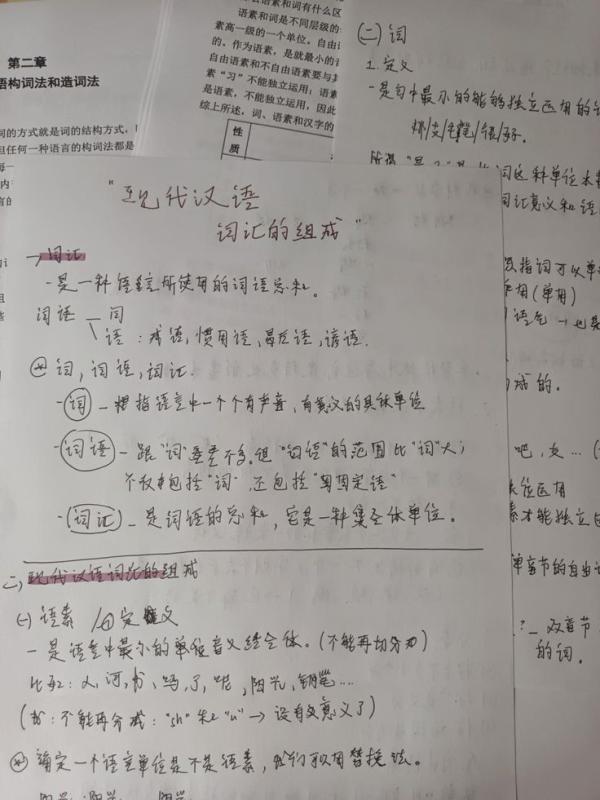 第二章
语构词法和造词法
词的方式就是词的结构方式，
但任何一种语言的构词法都是
素和词有什么区
语素和词是不同层级的
素高一级的一个单位。自由
的。作为语素，是就最小的
自由语素和不自由语素要与
素“习”不能独立运用；语素
是语素，不能独立运用，因此
综上所述，词、语素和汉字的
性
质
(二) 词
1. 定义
- 是句中最小的能够独立运用的
词这种单位
词汇意义和语
指词可以单
用(单用)
语气 → 也是
成的。
吧，女…(
位运用
素才能独立
单音节的自由
双音节
的词。
"现代汉语
词汇的组成"
一、词汇
- 是一种语言所使用的词语总和。
词语 — 词
语：成语，惯用语，歇后语，谚语.
* 词，词语，词汇.
- 词 - 是指语言中一个个有声音，有意义的具体单位
- 词语 - 跟"词"差不多，但"词语"的范围比"词"大；
不仅包括"词"，还包括"固定语"
- 词汇 - 是词语的总和，它是一种集全体单位。
二、现代汉语词汇的组成
(一) 语素 / ① 定义
- 是语言中最小的单位音义结合体。(不能再切分)
比如：人，河，书，吗，了，呢，阳光，钢笔....
(书：不能再分成："sh" 和 "u" → 没有意义了)
* 确定一个语言单位是不是语素，我们可以用替换法。